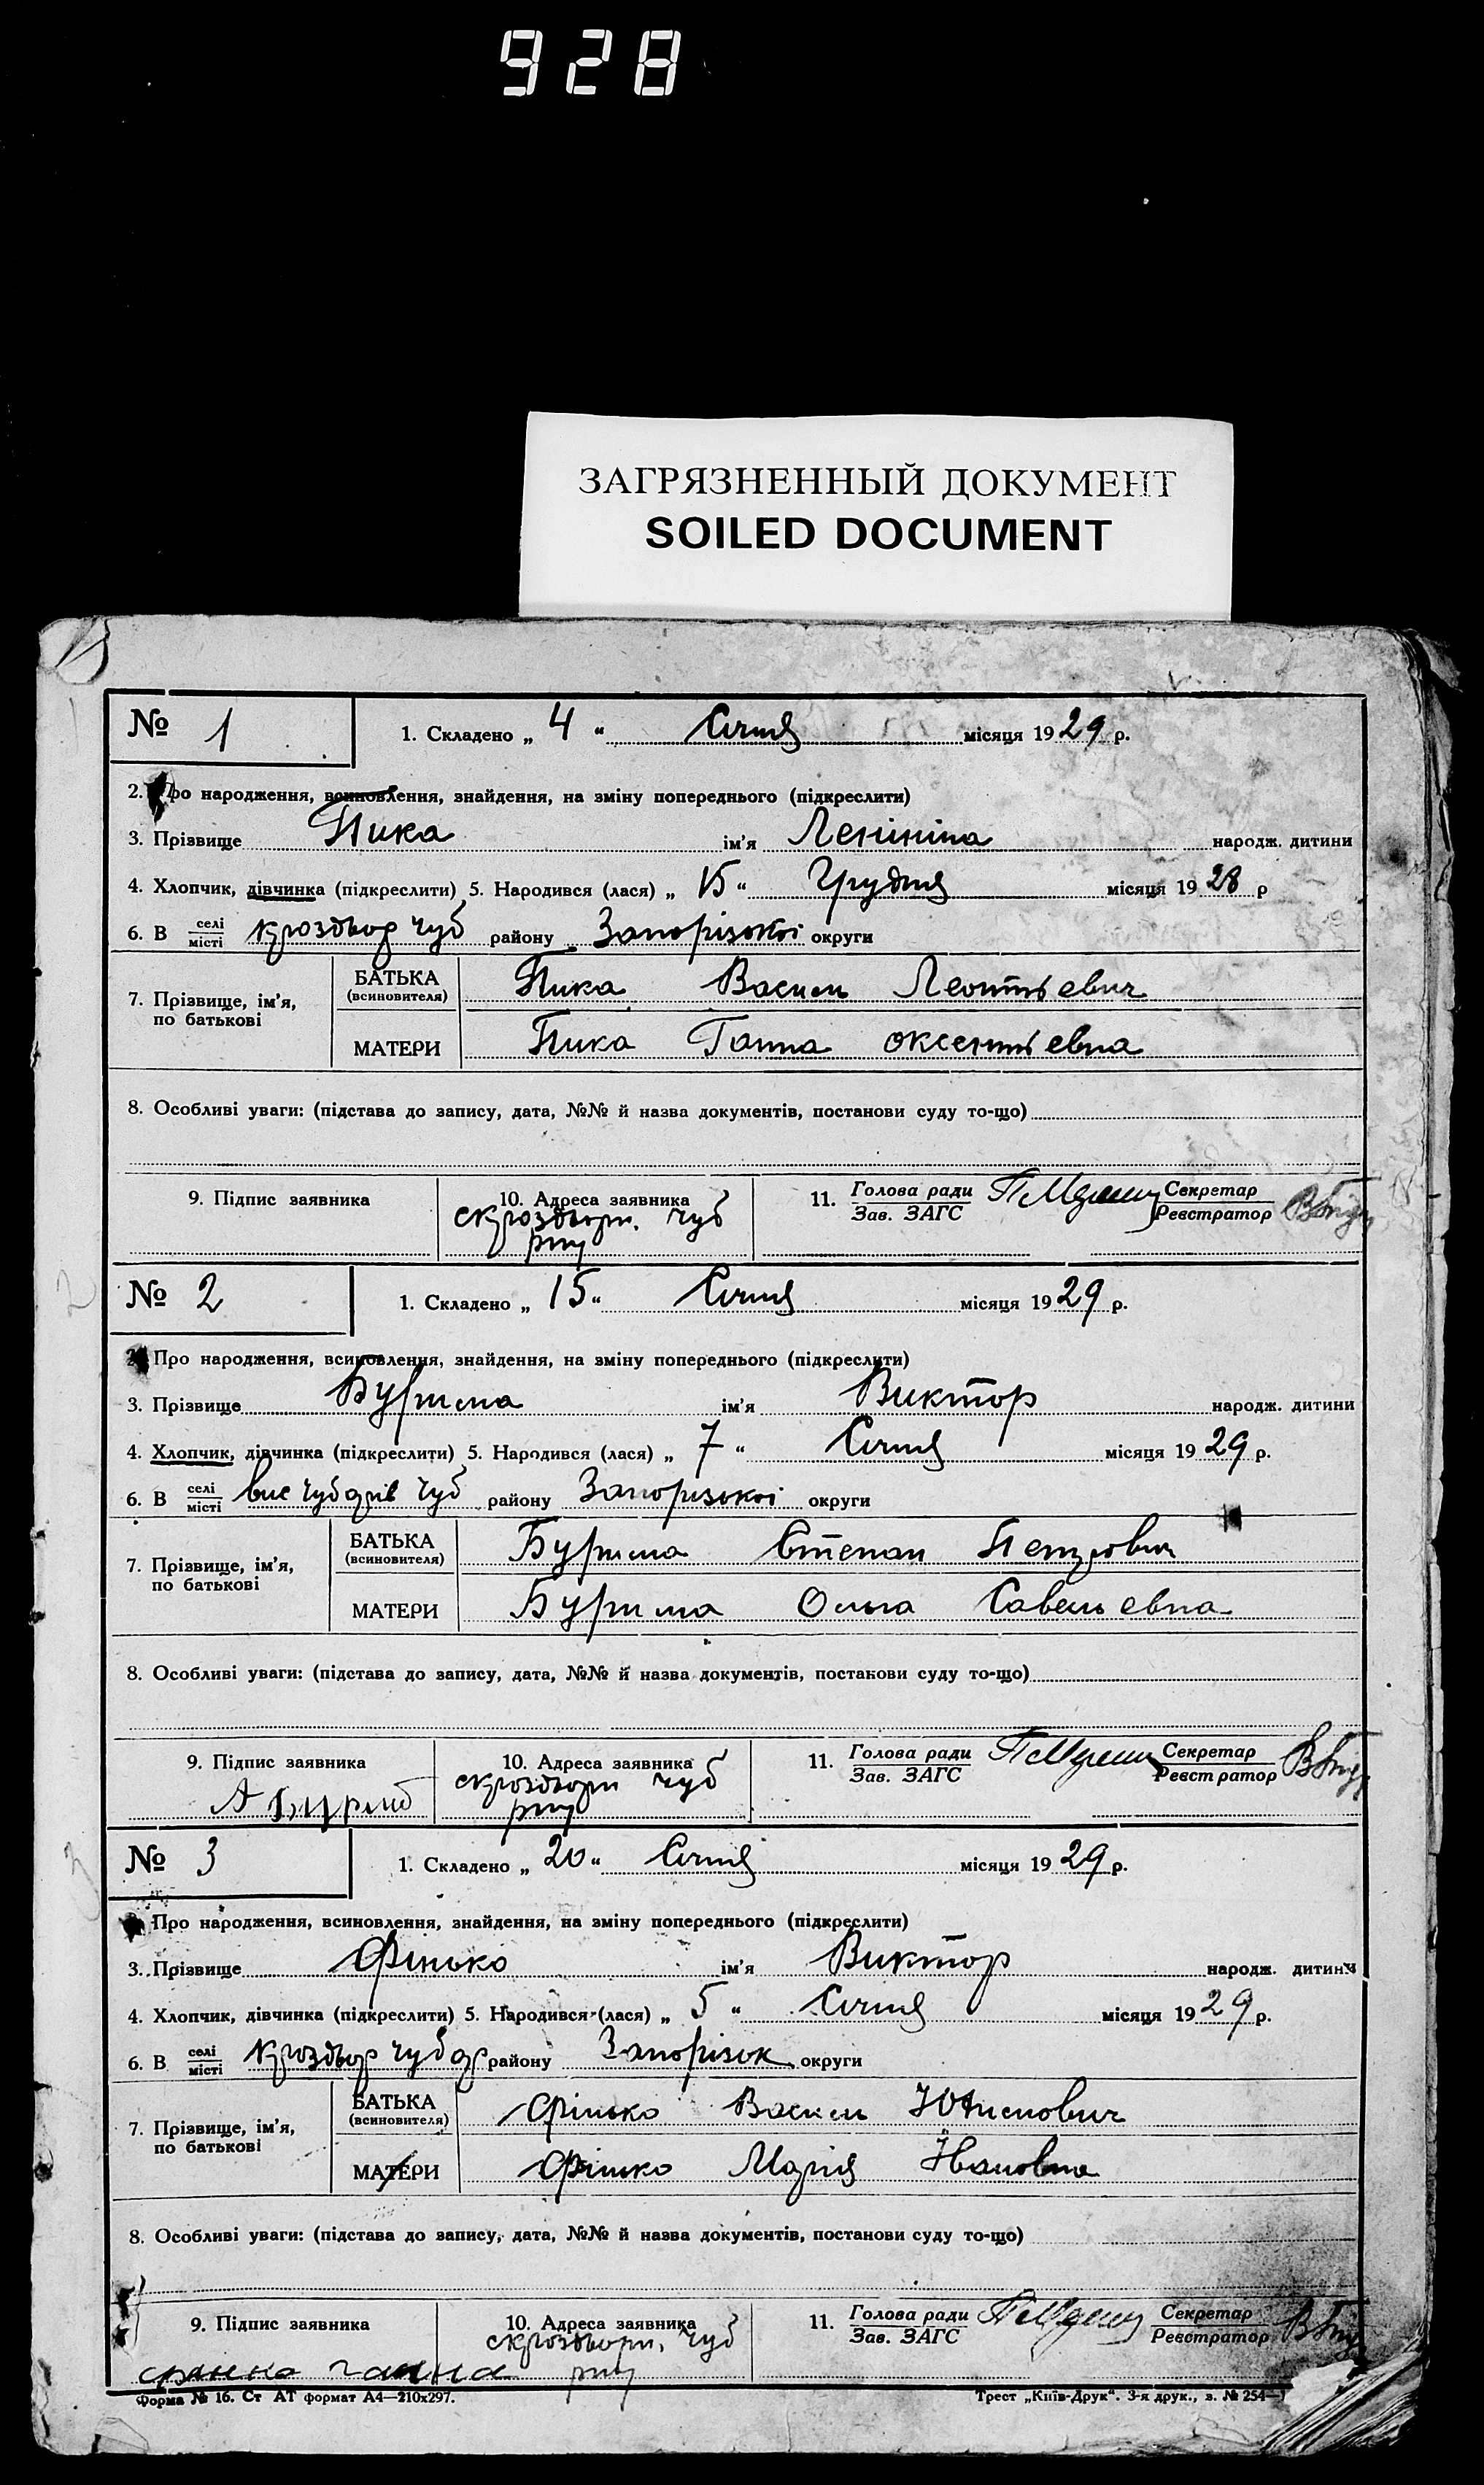 928
ЗАГРЯЗНЕННЫЙ ДОКУМЕНТ
SOILED DOCUMENT
№ 1
1. Складено „ 4 “ Січня місяця 1929 р.
2. Про народження, всиновлення, знайдення, на зміну попереднього (підкреслити)
3. Прізвище Пика ім'я Ленініна народж. дитини
4. Хлопчик, дівчинка (підкреслити) 5. Народився (лася) „ 15 “ Грудня місяця 1928 р
6. В селі/місті Чуб району Запорізької округи
7. Прізвище, ім'я, по батькові
БАТЬКА (всиновителя) Пика Василь Леонтьевич
МАТЕРИ Пика Ганна Оксентьевна
8. Особливі уваги: (підстава до запису, дата, №№ й назва документів, постанови суду то-що)
9. Підпис заявника
10. Адреса заявника
Чуб
р-ну
11. Голова ради/Зав. ЗАГС Секретар/Реєстратор
№ 2
1. Складено „ 15 “ Січня місяця 1929 р.
2. Про народження, всиновлення, знайдення, на зміну попереднього (підкреслити)
3. Прізвище Бурима ім'я Виктор народж. дитини
4. Хлопчик, дівчинка (підкреслити) 5. Народився (лася) „ 7 “ Січня місяця 1929 р.
6. В селі/місті Чуб району Запорізької округи
7. Прізвище, ім'я, по батькові
БАТЬКА (всиновителя) Бурима Степан Петрович
МАТЕРИ Бурима Ольга Савельевна
8. Особливі уваги: (підстава до запису, дата, №№ й назва документів, постанови суду то-що)
9. Підпис заявника
10. Адреса заявника
чуб
р-ну
11. Голова ради/Зав. ЗАГС Секретар/Реєстратор
№ 3
1. Складено „ 20 “ Січня місяця 1929 р.
2. Про народження, всиновлення, знайдення, на зміну попереднього (підкреслити)
3. Прізвище Фінько ім'я Виктор народж. дитини
4. Хлопчик, дівчинка (підкреслити) 5. Народився (лася) „ 5 “ Січня місяця 1929 р.
6. В селі/місті району Запорізок округи
7. Прізвище, ім'я, по батькові
БАТЬКА (всиновителя) Фінько Василь
МАТЕРИ Фінько Марія Івановна
8. Особливі уваги: (підстава до запису, дата, №№ й назва документів, постанови суду то-що)
9. Підпис заявника
10. Адреса заявника
Чуб
р-ну
11. Голова ради/Зав. ЗАГС Секретар/Реєстратор
Форма № 16. Ст АТ формат А4—210х297.
Трест „Київ-Друк“. 3-я друк., з. № 254—